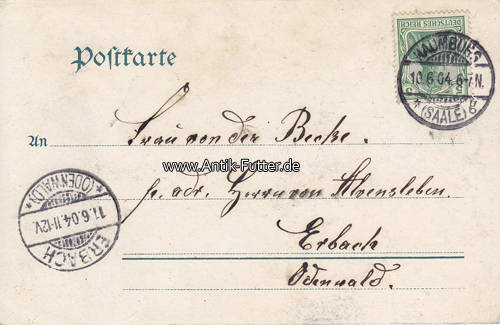 Postkarte
DEUTSCHES REICH
NAUMBURG
10.6.04.6-7.N.
* (SAALE) g
An Frau von der Becke.
www.Antik-Futter.de
pr. adr. Herrn von Alvensleben.
Erbach
Odenwald.
ERBACH
11.6.04.11-12V.
*(ODENWALD)*